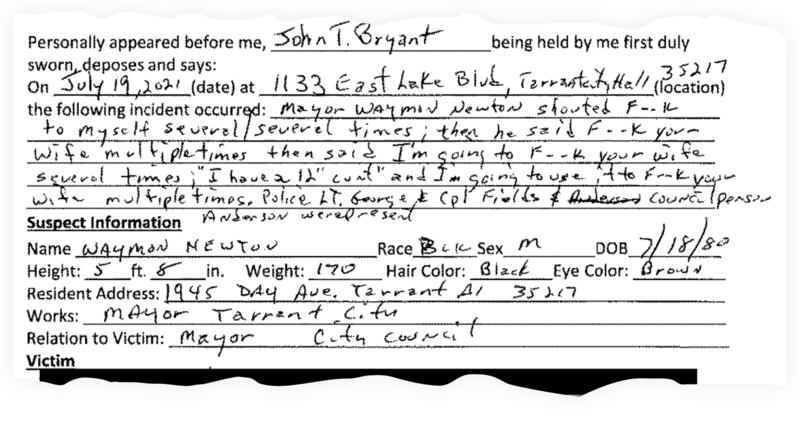 Personally appeared before me, John T. Bryant being held by me first duly
sworn, deposes and says:
On July 19, 2021 (date) at 1133 East Lake Blvd, Tarrant City Hall 35217 (location)
the following incident occurred: Mayor Waymon Newton shouted F--k
to myself several/several times; then he said F--k your
wife multiple times then said I'm going to F--k your wife
several times; "I have a 12" cunt" and I'm going to use it to F--k your
wife multiple times. Police LT. George & Cpl Fields & Anderson Council person
Anderson were present
Suspect Information
Name WAYMON NEWTON Race Blk Sex M DOB 7/18/80
Height: 5 ft. 8 in. Weight: 170 Hair Color: Black Eye Color: Brown
Resident Address: 1945 DAY Ave. Tarrant Al 35217
Works: Mayor Tarrant City
Relation to Victim: Mayor City Council
Victim